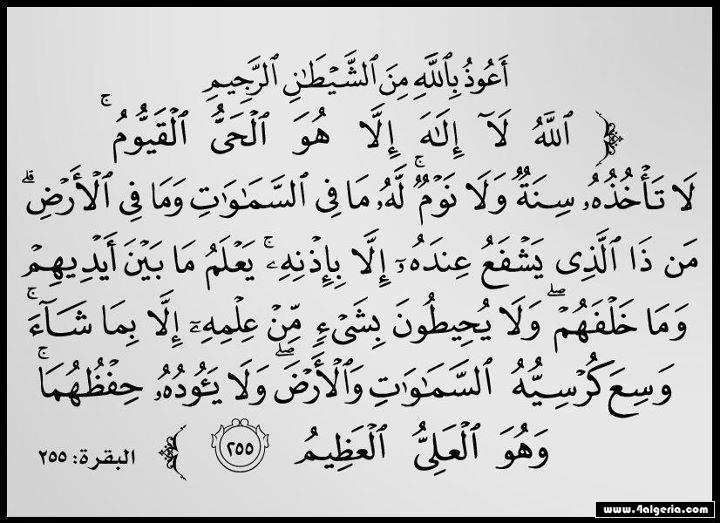 أَعُوذُ بِٱللَّهِ مِنَ ٱلشَّيۡطَٰنِ ٱلرَّجِيمِ
﴿ ٱللَّهُ لَآ إِلَٰهَ إِلَّا هُوَ ٱلۡحَىُّ ٱلۡقَيُّومُۚ
لَا تَأۡخُذُهُۥ سِنَةٌ وَلَا نَوۡمٌۚ لَّهُۥ مَا فِى ٱلسَّمَٰوَٰتِ وَمَا فِى ٱلۡأَرۡضِۗ
مَن ذَا ٱلَّذِى يَشۡفَعُ عِندَهُۥٓ إِلَّا بِإِذۡنِهِۦۚ يَعۡلَمُ مَا بَيۡنَ أَيۡدِيهِمۡ
وَمَا خَلۡفَهُمۡۖ وَلَا يُحِيطُونَ بِشَىۡءٍ مِّنۡ عِلۡمِهِۦٓ إِلَّا بِمَا شَآءَۚ
وَسِعَ كُرۡسِيُّهُ ٱلسَّمَٰوَٰتِ وَٱلۡأَرۡضَۖ وَلَا يَـُٔودُهُۥ حِفۡظُهُمَاۚ
وَهُوَ ٱلۡعَلِىُّ ٱلۡعَظِيمُ ٢٥٥ ﴾ البقرة: ٢٥٥
www.4algeria.com